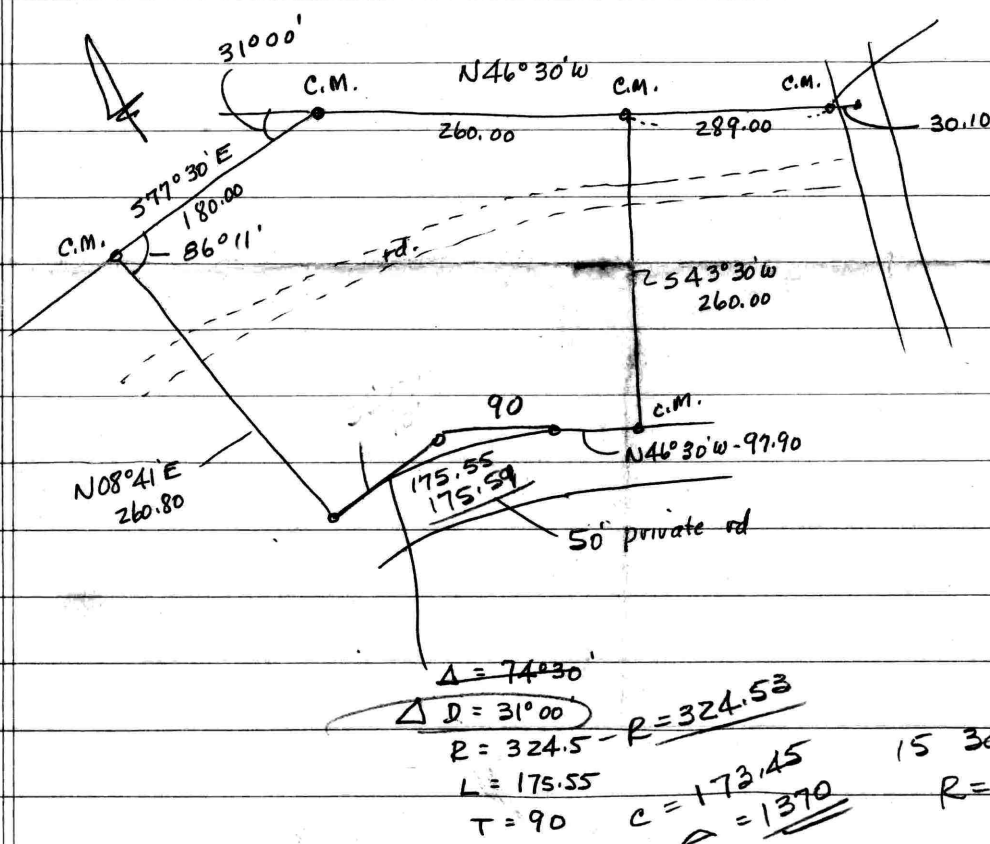 31°00'
C.M.
N46°30'W
C.M.
C.M.
260.00
289.00
30.10
S77°30'E
180.00
C.M.
86°11'
rd.
S43°30'W
260.00
90
C.M.
N46°30'W-97.90
175.55
175.59
N08°41'E
260.80
50' private rd
Δ = 74°30'
Δ D = 31°00'
R = 324.5 - R = 324.53
L = 175.55
T = 90
C = 173.45
= 1370
15 30
R =